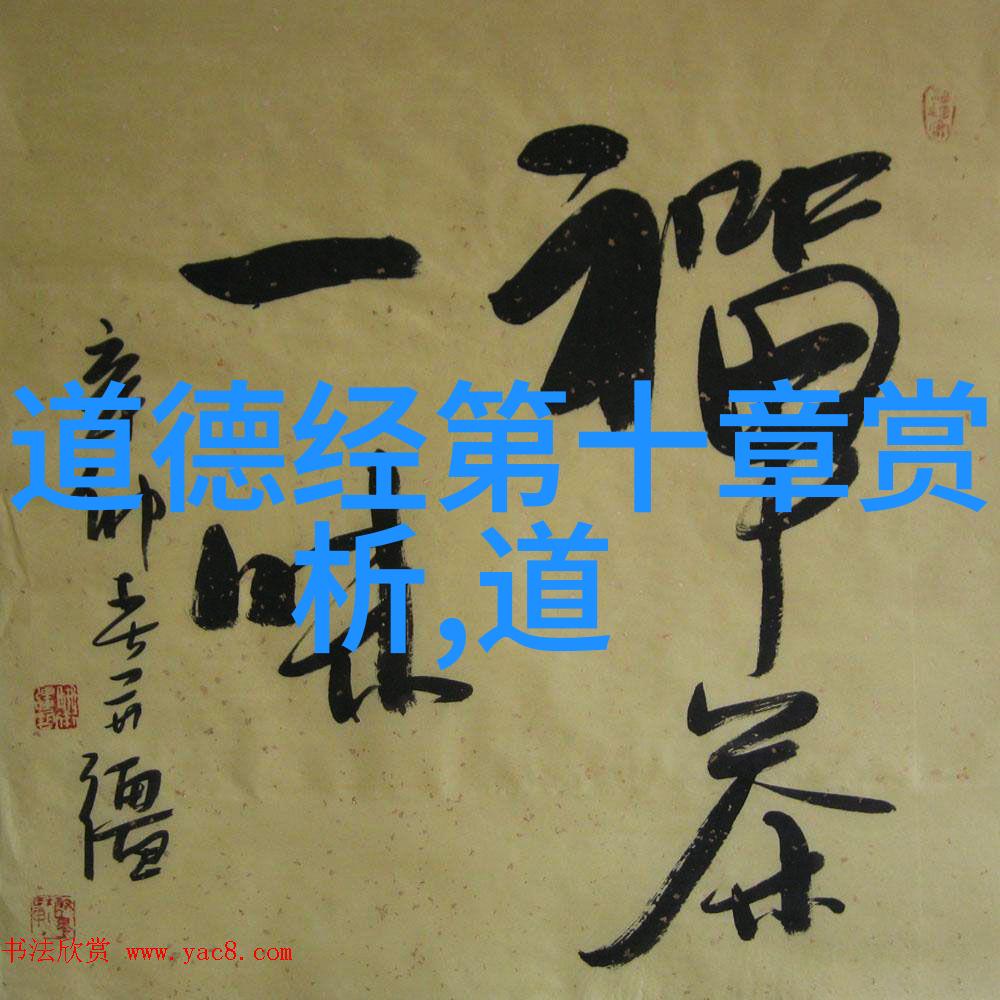 禪茶
一味
道德经第十章赏
析,道
书法欣赏 www.yac8.com